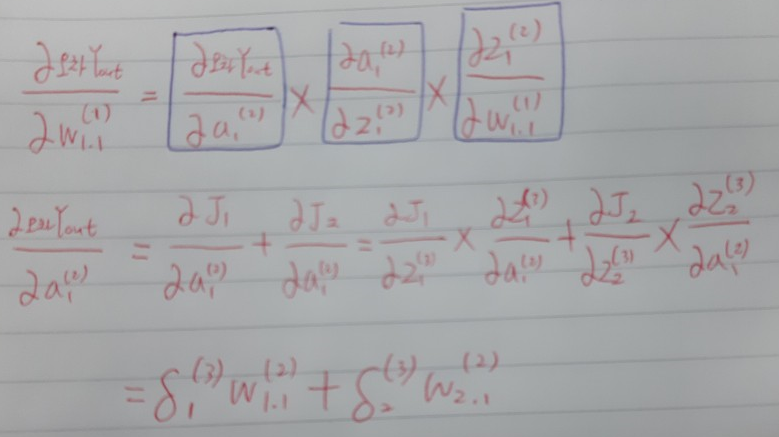 ∂오차Yout / ∂w₁.₁⁽¹⁾ = ∂오차Yout / ∂a₁⁽²⁾ × ∂a₁⁽²⁾ / ∂z₁⁽²⁾ × ∂z₁⁽²⁾ / ∂w₁.₁⁽¹⁾
∂오차Yout / ∂a₁⁽²⁾ = ∂J₁ / ∂a₁⁽²⁾ + ∂J₂ / ∂a₁⁽²⁾ = ∂J₁ / ∂z₁⁽³⁾ × ∂z₁⁽³⁾ / ∂a₁⁽²⁾ + ∂J₂ / ∂z₂⁽³⁾ × ∂z₂⁽³⁾ / ∂a₁⁽²⁾
= δ₁⁽³⁾ w₁.₁⁽²⁾ + δ₂⁽³⁾ w₂.₁⁽²⁾